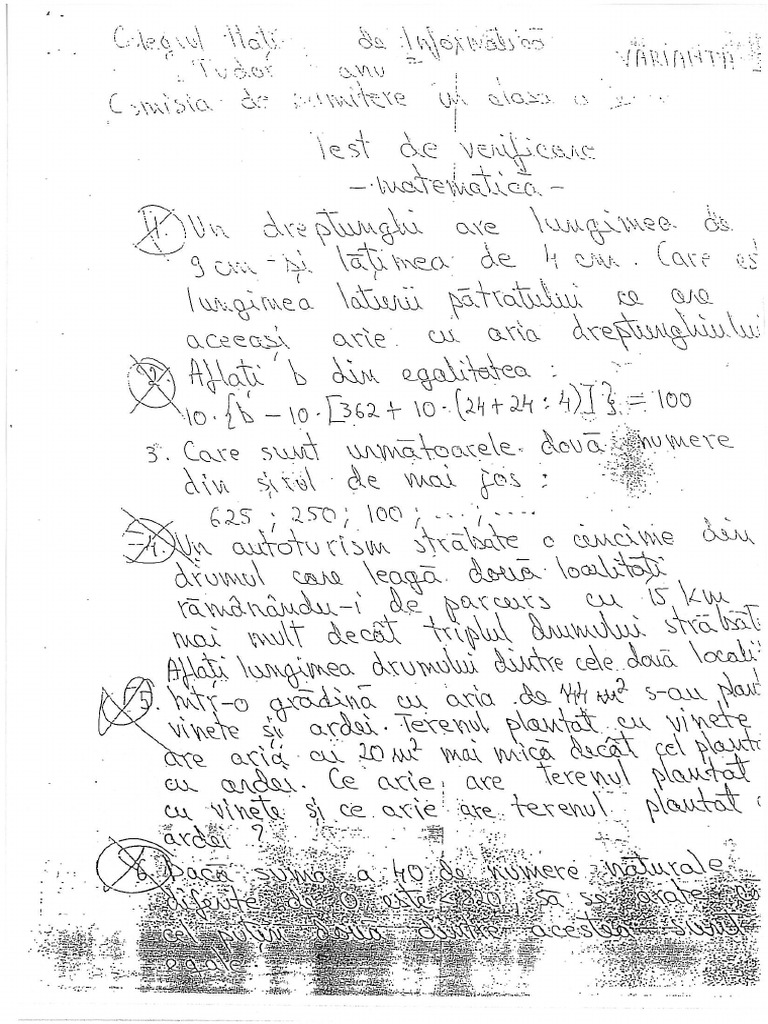 de Informatică
VARIANTA
Tudor
Comisia de admitere în clasa a
Test de verificare
- matematică -
1. Un dreptunghi are lungimea de
9 cm și lățimea de 4 cm. Care es
lungimea laturii pătratului ce are
aceeași arie cu aria dreptunghiului
2. Aflați b din egalitatea :
10·{b - 10·[362 + 10·(24+24:4)]} = 100
3. Care sunt următoarele două numere
din șirul de mai jos :
625 ; 250 ; 100 ; ... ; ....
4. Un autoturism străbate o cincime din
drumul care leagă două localități
rămânându-i de parcurs cu 15 km
mai mult decât triplul drumului străbăt
Aflați lungimea drumului dintre cele două locali
5. Într-o grădină cu aria de 44 m² s-au plan
vinete și ardei. Terenul plantat cu vinete
are aria cu 20 m² mai mică decât cel plant
cu ardei. Ce arie are terenul plantat
cu vinete și ce arie are terenul plantat
ardei ?
6. Dacă suma a 40 de numere naturale
diferite de 0 este să se arate
cel puțin două dintre acestea sunt
egale